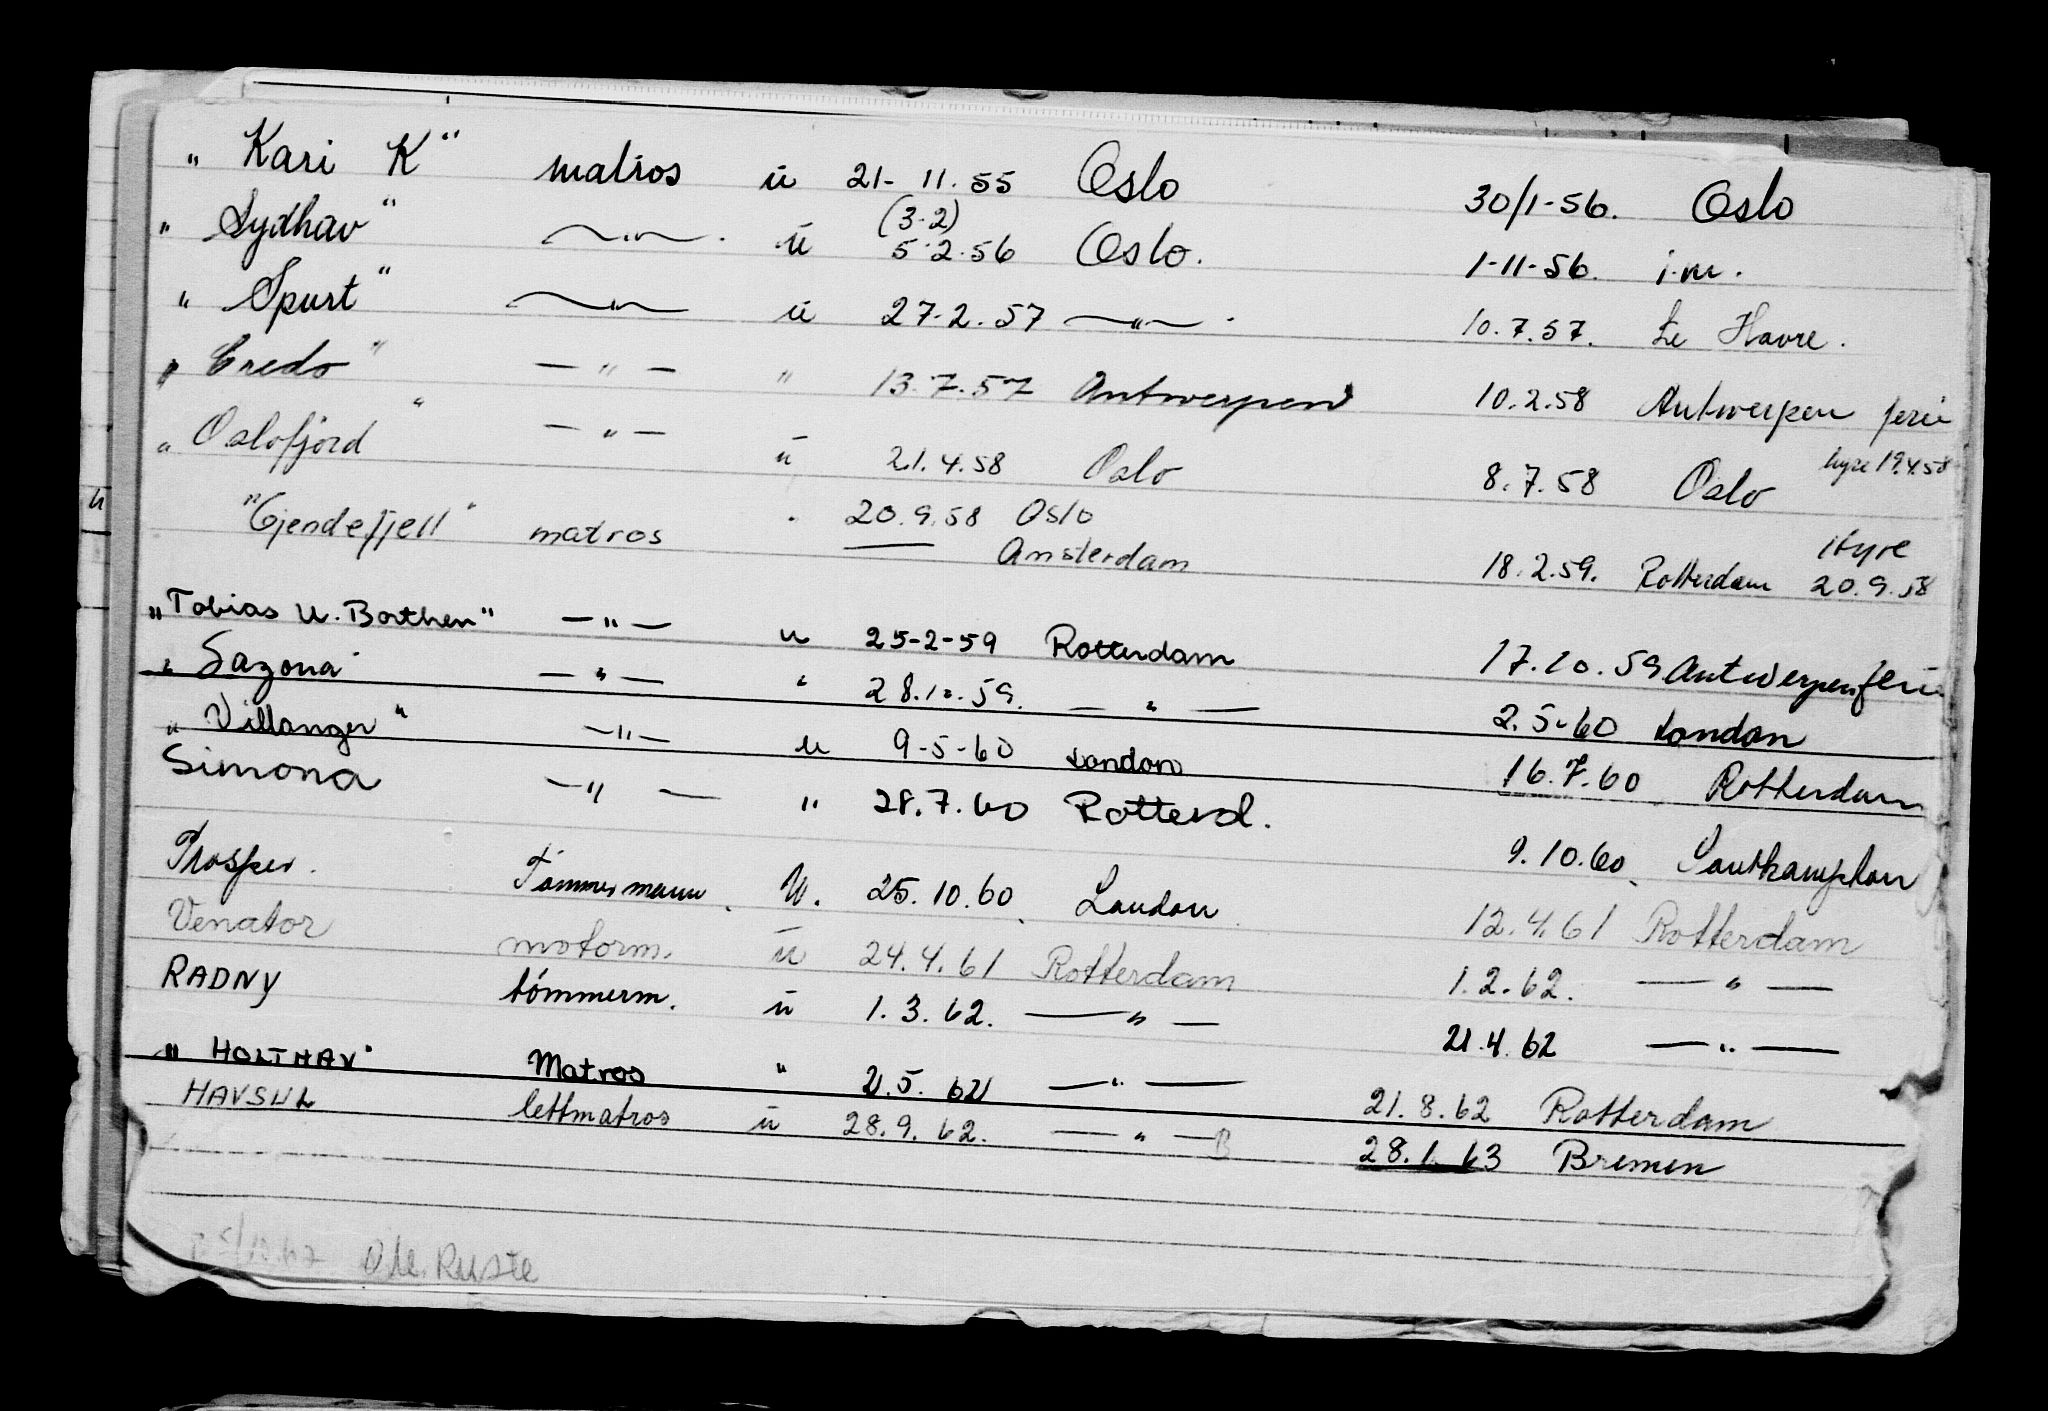 " Kari K " matros u 21- 11. 55 Oslo 30/1-56. Oslo
(3-2)
" Sydhav " —"—. u 5.2.56 Oslo. 1-11-56. i.m.
" Spurt " —"— u 27.2.57 —"— 10.7.57. Le Havre.
" Credo " —"— " 13.7.57 Antwerpen 10.2.58 Antwerpen ferie
" Oslofjord " —"— u 21.4.58 Oslo 8.7.58 Oslo hyre 19.4.58
"Gjendefjell" matros 20.9.58 Oslo Hyre
— Amsterdam 18.2.59. Rotterdam 20.9.58
"Tobias U. Borthen" —"— u 25-2-59 Rotterdam 17.10.59 Antwerpen ferie
" Sazona " —"— " 28.12.59. —"— 2.5-60 London
" Villanger " —"— u 9-5-60 London 16.7.60 Rotterdam
Simona —"— " 28.7.60 Rotterd. 9.10.60. Southampton
Prosper. Tømmermann. U. 25.10.60. London. 12.4.61 Rotterdam
Venator motorm. u 24.4.61 Rotterdam 1.2.62. —"—
RADNY tømmerm. u 1.3.62. —"— 21.4.62 —"—
" HOLTHAV " Matros " —"— 21.8.62 Rotterdam
HAVSUL lettmatros u 28.9.62. —"— B 28.1.63 Bremen
Ruste